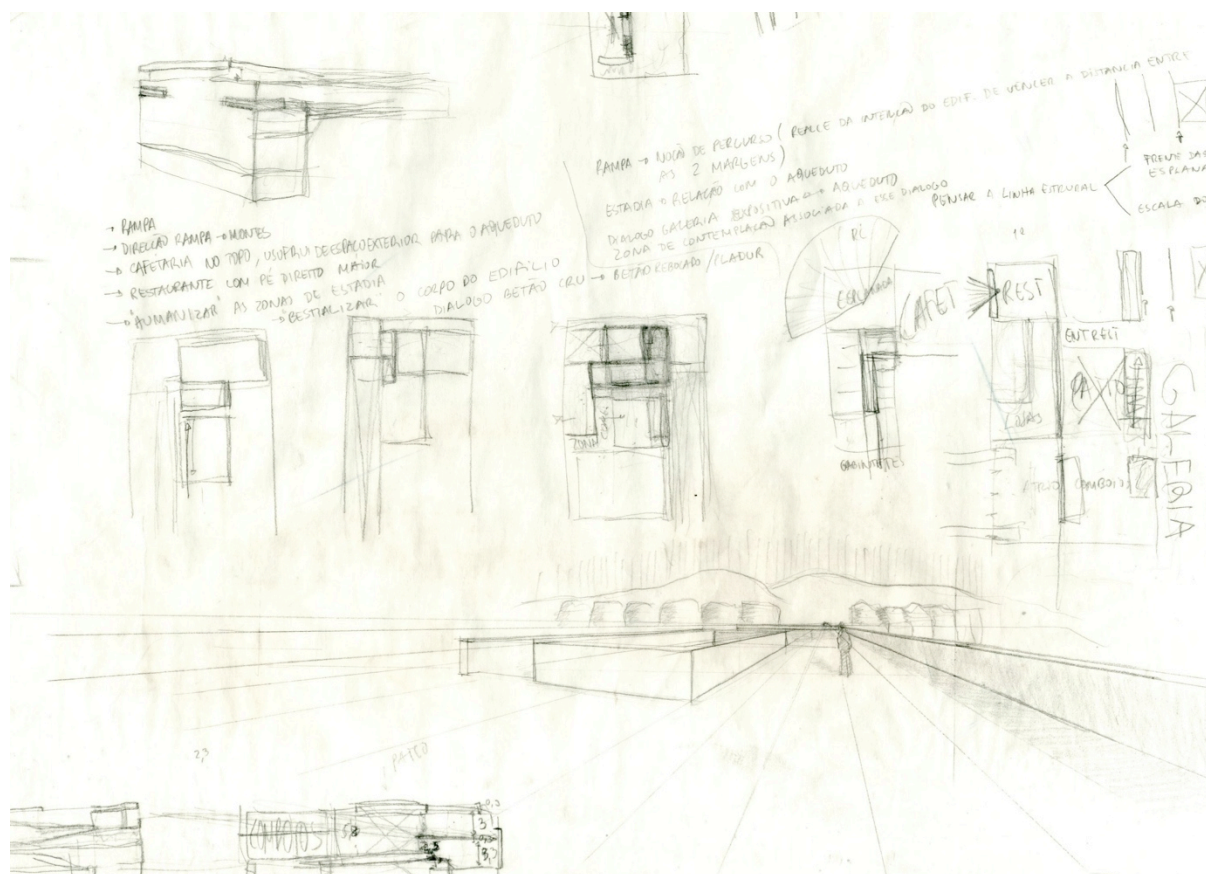 → RAMPA
→ DIRECÇÃO RAMPA → MONTES
→ CAFETARIA NO TOPO, USUFRUI DE ESPAÇO EXTERIOR PARA O AQUEDUTO
→ RESTAURANTE COM PÉ DIREITO MAIOR
→ "HUMANIZAR" AS ZONAS DE ESTADIA
→ "BESTIALIZAR" O CORPO DO EDIFÍCIO
DIALOGO BETÃO CRU → BETÃO REBOCADO / PLADUR
RAMPA → NOÇÃO DE PERCURSO (REALCE DA INTENÇÃO DO EDIF. DE VENCER A DISTANCIA ENTRE
AS 2 MARGENS)
ESTADIA → RELAÇÃO COM O AQUEDUTO
DIALOGO GALERIA EXPOSITIVA ↔ AQUEDUTO
ZONA DE CONTEMPLAÇÃO ASSOCIADA A ESSE DIALOGO
PENSAR A LINHA ESTRUTURAL
FRENTE DAS
ESPLANA
ESCALA DO
ESPLANADA
CAFET
REST
ENTREST
PATIO
GALERIA
GABINETES
ATRIO COMBOIOS
2,3
PATIO
COMBOIOS